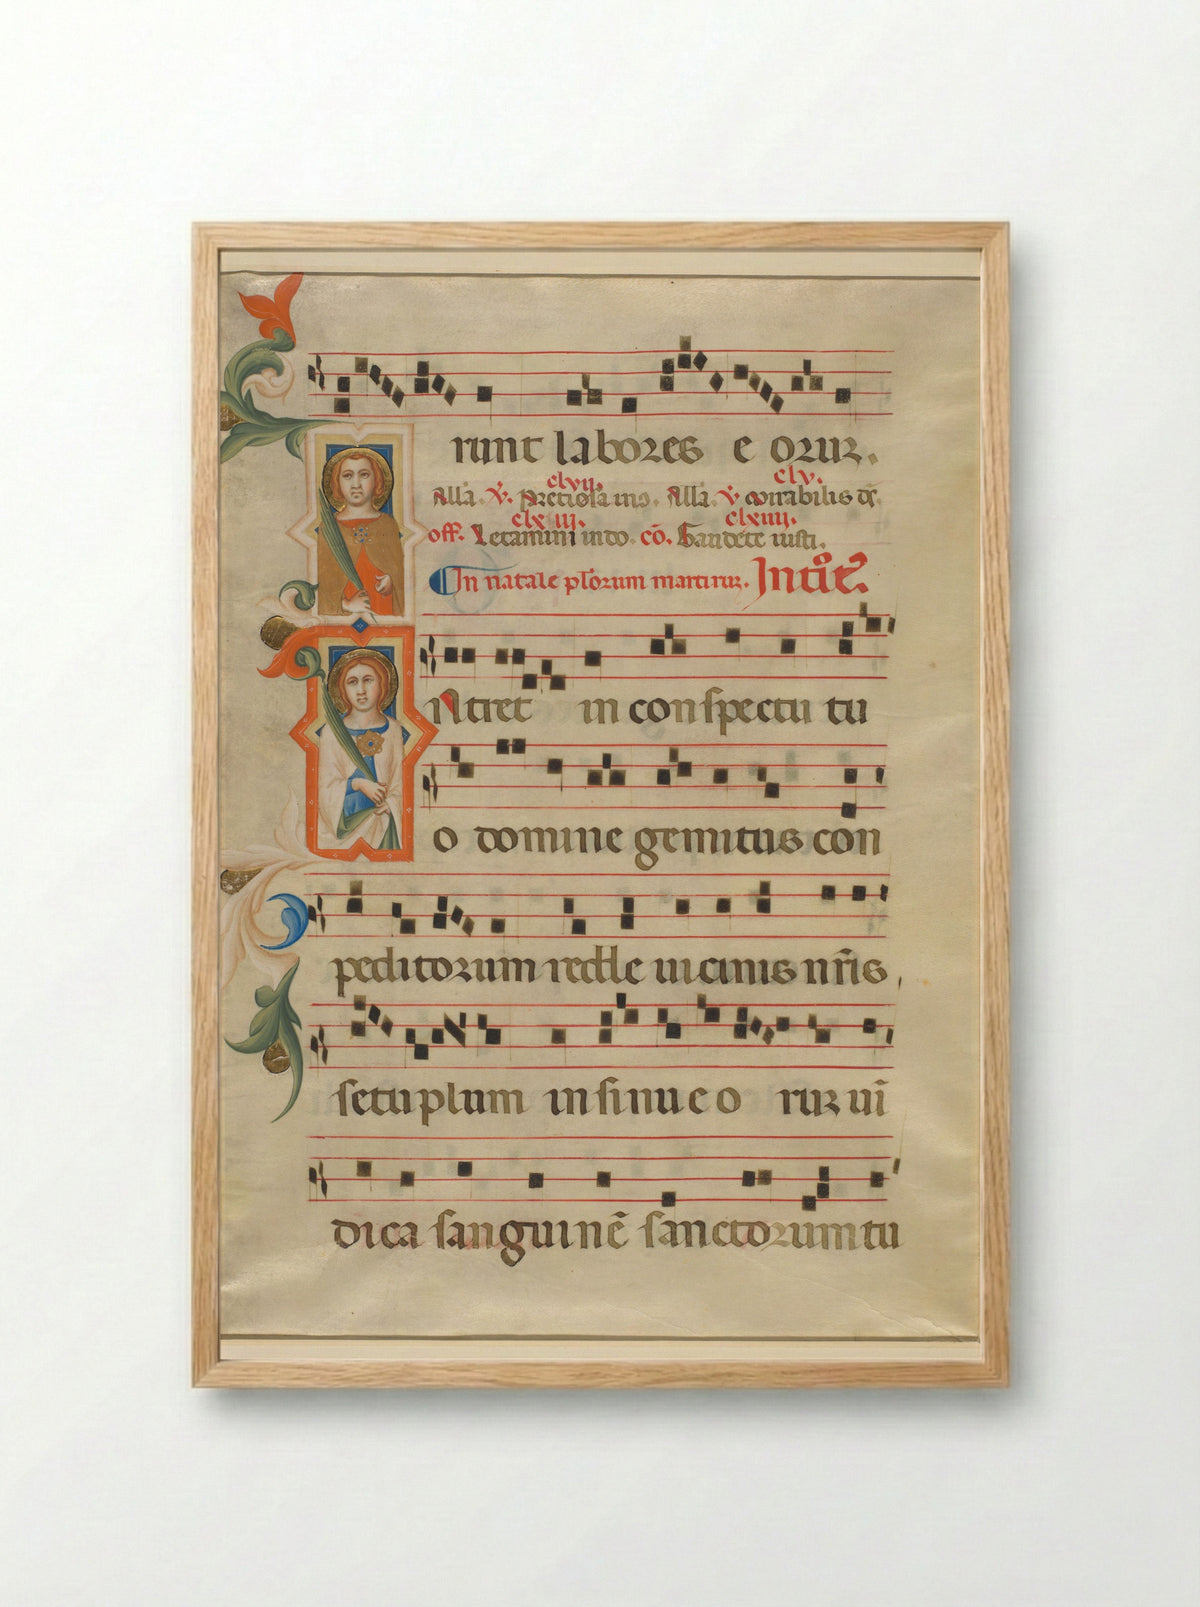 runt labores e orum.
clvii. clv.
Alla. v. Pretiosa in9. Alla. v. mirabilis ds.
clxiii. clxiiii.
off. Letamini in do. cō. Gaudete iusti.
In natale pl'orum martirum. Introit9.
Ntret in conspectu tu
o domine gemitus con
peditorum redde uicinis nr̄is
septuplum in sinu eorum uī
dica sanguinē sanctorum tu